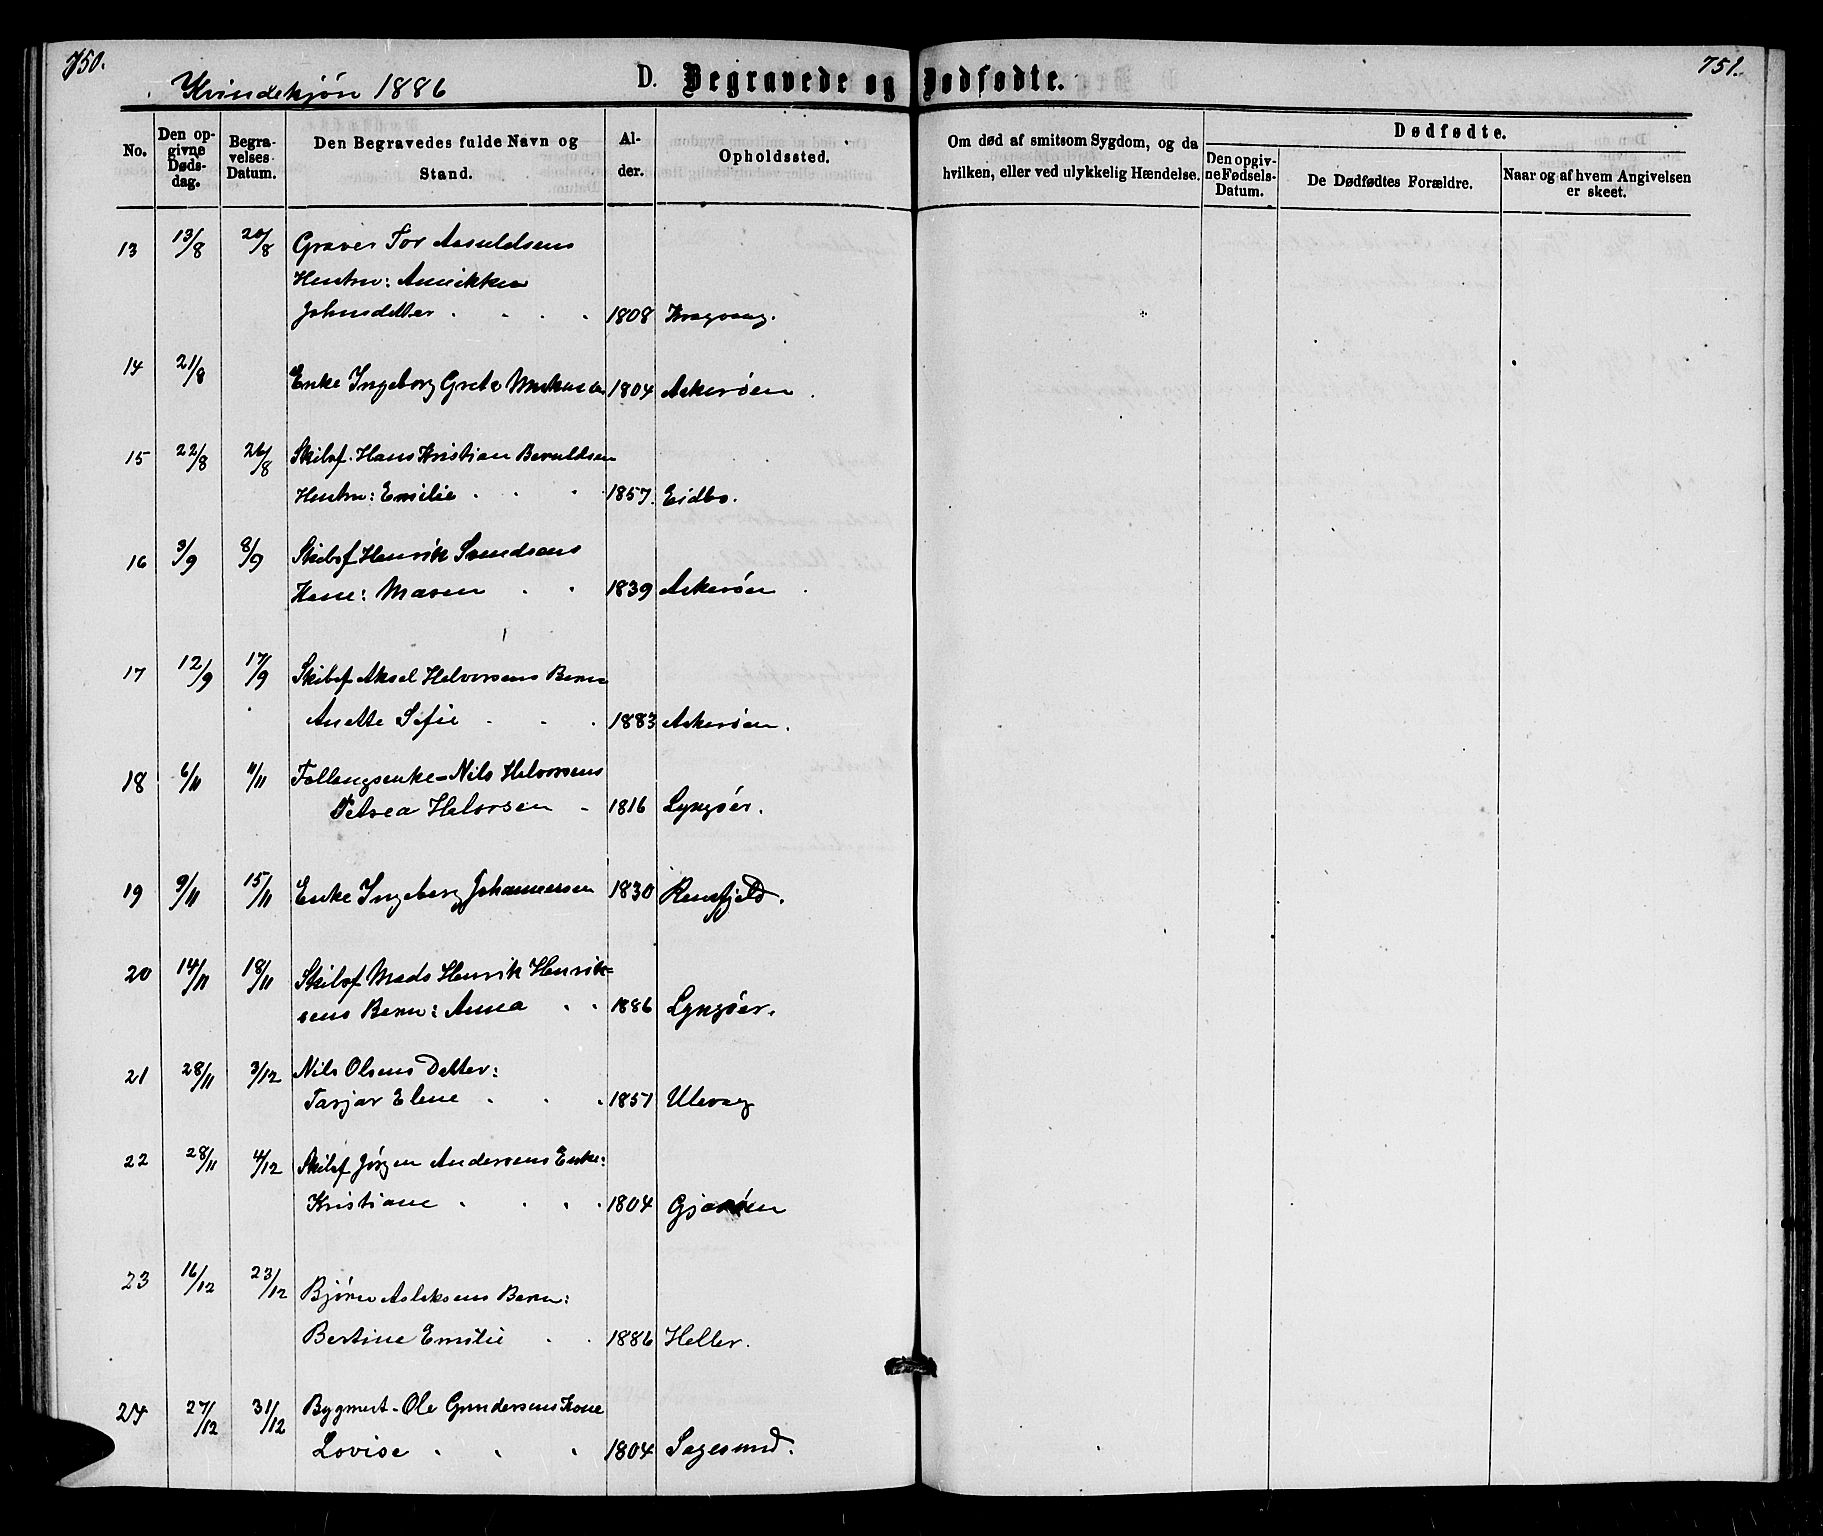 750.
Kvindekjøn 1886
D. Begravede og Dødfødte.
751.
No.
Den opgivne Dødsdag.
Begravelses-Datum.
Den Begravedes fulde Navn og Stand.
Alder.
Opholdssted.
Om død af smitsom Sygdom, og da hvilken, eller ved ulykkelig Hændelse.
Dødfødte.
Den opgivne Fødsels-Datum.
De Dødfødtes Forældre.
Naar og af hvem Angivelsen er skeet.
13 13/8 20/8 Graver Tor Aasuldsens
Hustru: Annikken
Johnsdatter . . . . 1808 Kragvaag.
14 21/8 Enke Ingeborg Grete 1804 Askerøen.
15 22/8 26/8 Skibsf. Hans Kristian Beruldsen
Hustru: Emilie . . . 1857. Eidbo.
16 3/9 8/9 Skibsf Henrik Svendsens
Kone: Maren . . 1839 Askerøen.
17 12/9 17/9 Skibsf Aksel Halvorsens Barn
Anette Sofie . . . 1883 Askerøen.
18 6/11 11/11 Nils Halvorsens
Petrea Halvorsen . 1816 Lyngøer.
19 9/11 15/11 Enke Ingeborg Johannessen 1830 Rensfjeld.
20 14/11 18/11 Skibsf Mads Henrik Henrik=
sens Barn: Anna . . 1886 Lyngøer.
21 28/11 3/12 Nils Olsens Datter:
Tarjer Elene . . . 1857 Ulevaag
22 28/11 4/12 Skibsf Jørgen Andersens Enke:
Kristiane . . . . 1804 Gjerøen
23 16/12 23/12 Bjørn Aslaksens Barn:
Bertine Emilie . . 1886 Heller.
24 27/12 31/12 Bygmest. Ole Gundersens Kone
Lovise . . . 1804 Sagesund.